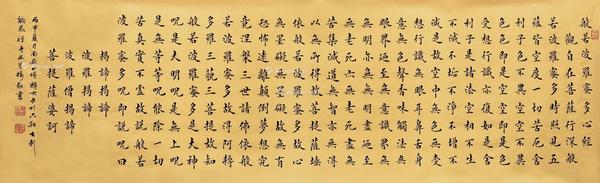 般若波羅蜜多心經
觀自在菩薩行深般
若波羅蜜多時照見五
蘊皆空度一切苦厄舍
利子色不異空空不異
色色即是空空即是色
受想行識亦復如是舍
利子是諸法空相不生
不滅不垢不淨不增不
減是故空中無色無受
想行識無眼耳鼻舌身
意無色聲香味觸法無
眼界乃至無意識界無
無明亦無無明盡乃至
無老死亦無老死盡無
苦集滅道無智亦無得
以無所得故菩提薩埵
依般若波羅蜜多故心
無罣礙無罣礙故無有
恐怖遠離顛倒夢想究
竟涅槃三世諸佛依般
若波羅蜜多故得阿耨
多羅三藐三菩提故知
般若波羅蜜多是大神
咒是大明咒是無上咒
是無等等咒能除一切
苦真實不虛故說般若
波羅蜜多咒即說咒曰
揭諦揭諦
波羅揭諦
波羅僧揭諦
菩提薩婆訶